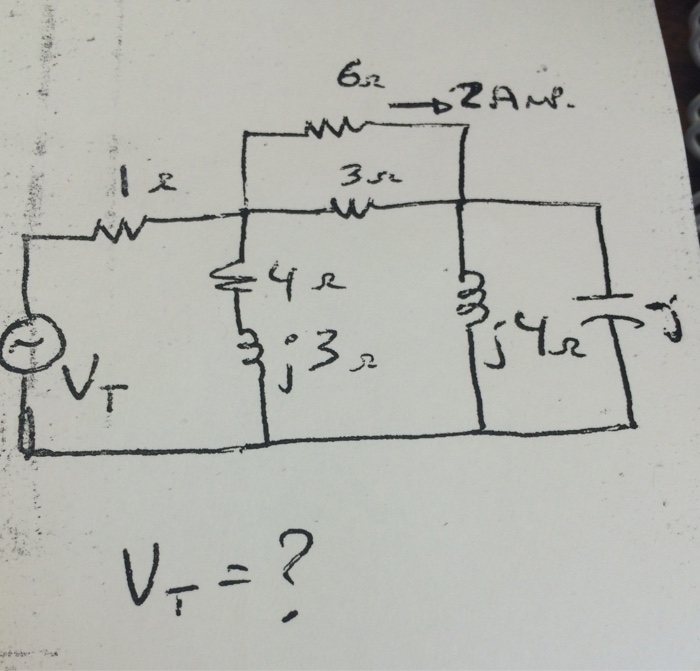 6Ω
2Amp.
1Ω
3Ω
4Ω
j3Ω
j4Ω
-j
V_T
V_T = ?